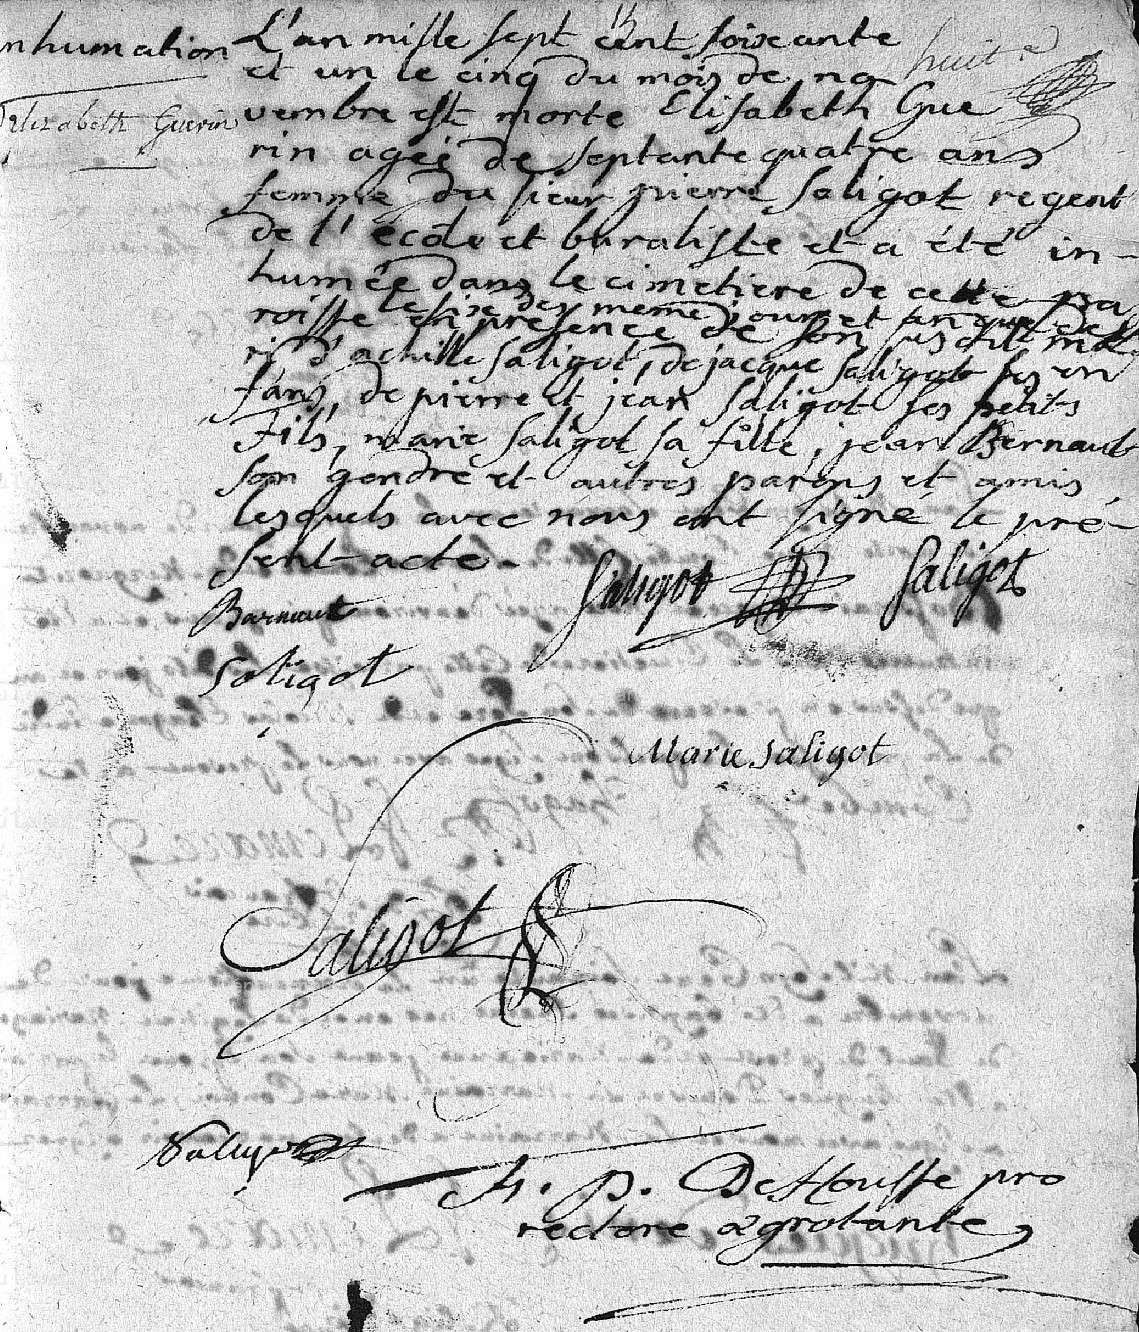 nhumation
Elizabeth Guerin
huit e
L'an mille sept cent soixante
et un le cinq du mois de no
vembre est morte Elisabeth Gue
rin agée de septante quatre ans
femme du sieur pierre Saligot regent
de l'école et buraliste et a été in-
humée dans le cimetiere de cette pa
le six des meme jour et an que
roisse en presence de son susdit ma
ri d'achille Saligot, de jacque Saligot ses en
fans, de pierre et jean Saligot ses petits
fils, marie Saligot sa fille, jean Bernaut
son gendre et autres parens et amis,
lesquels avec nous ont signé le pré-
sent acte.
Barnaut
Saligot
Saligot
Saligot
Marie Saligot
Saligot
Saligot
h. p. DeHousse pro
rectore ægrotante